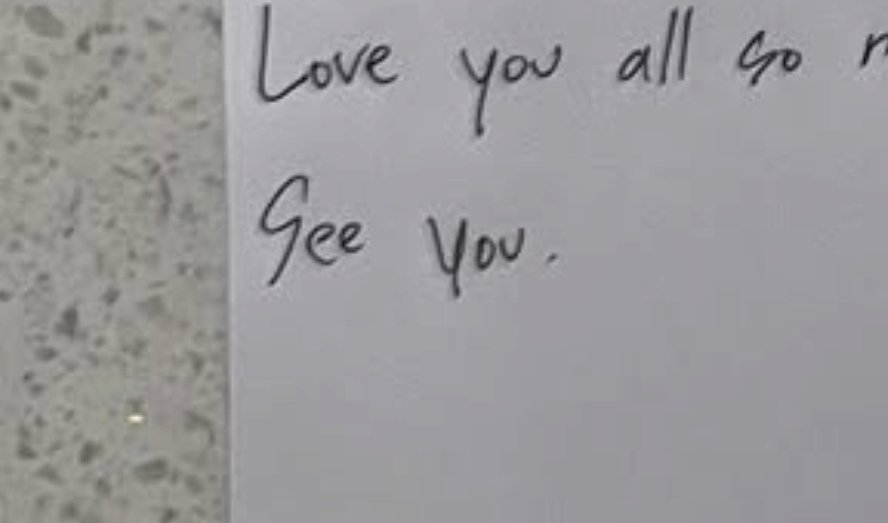 Love you all so
See you.